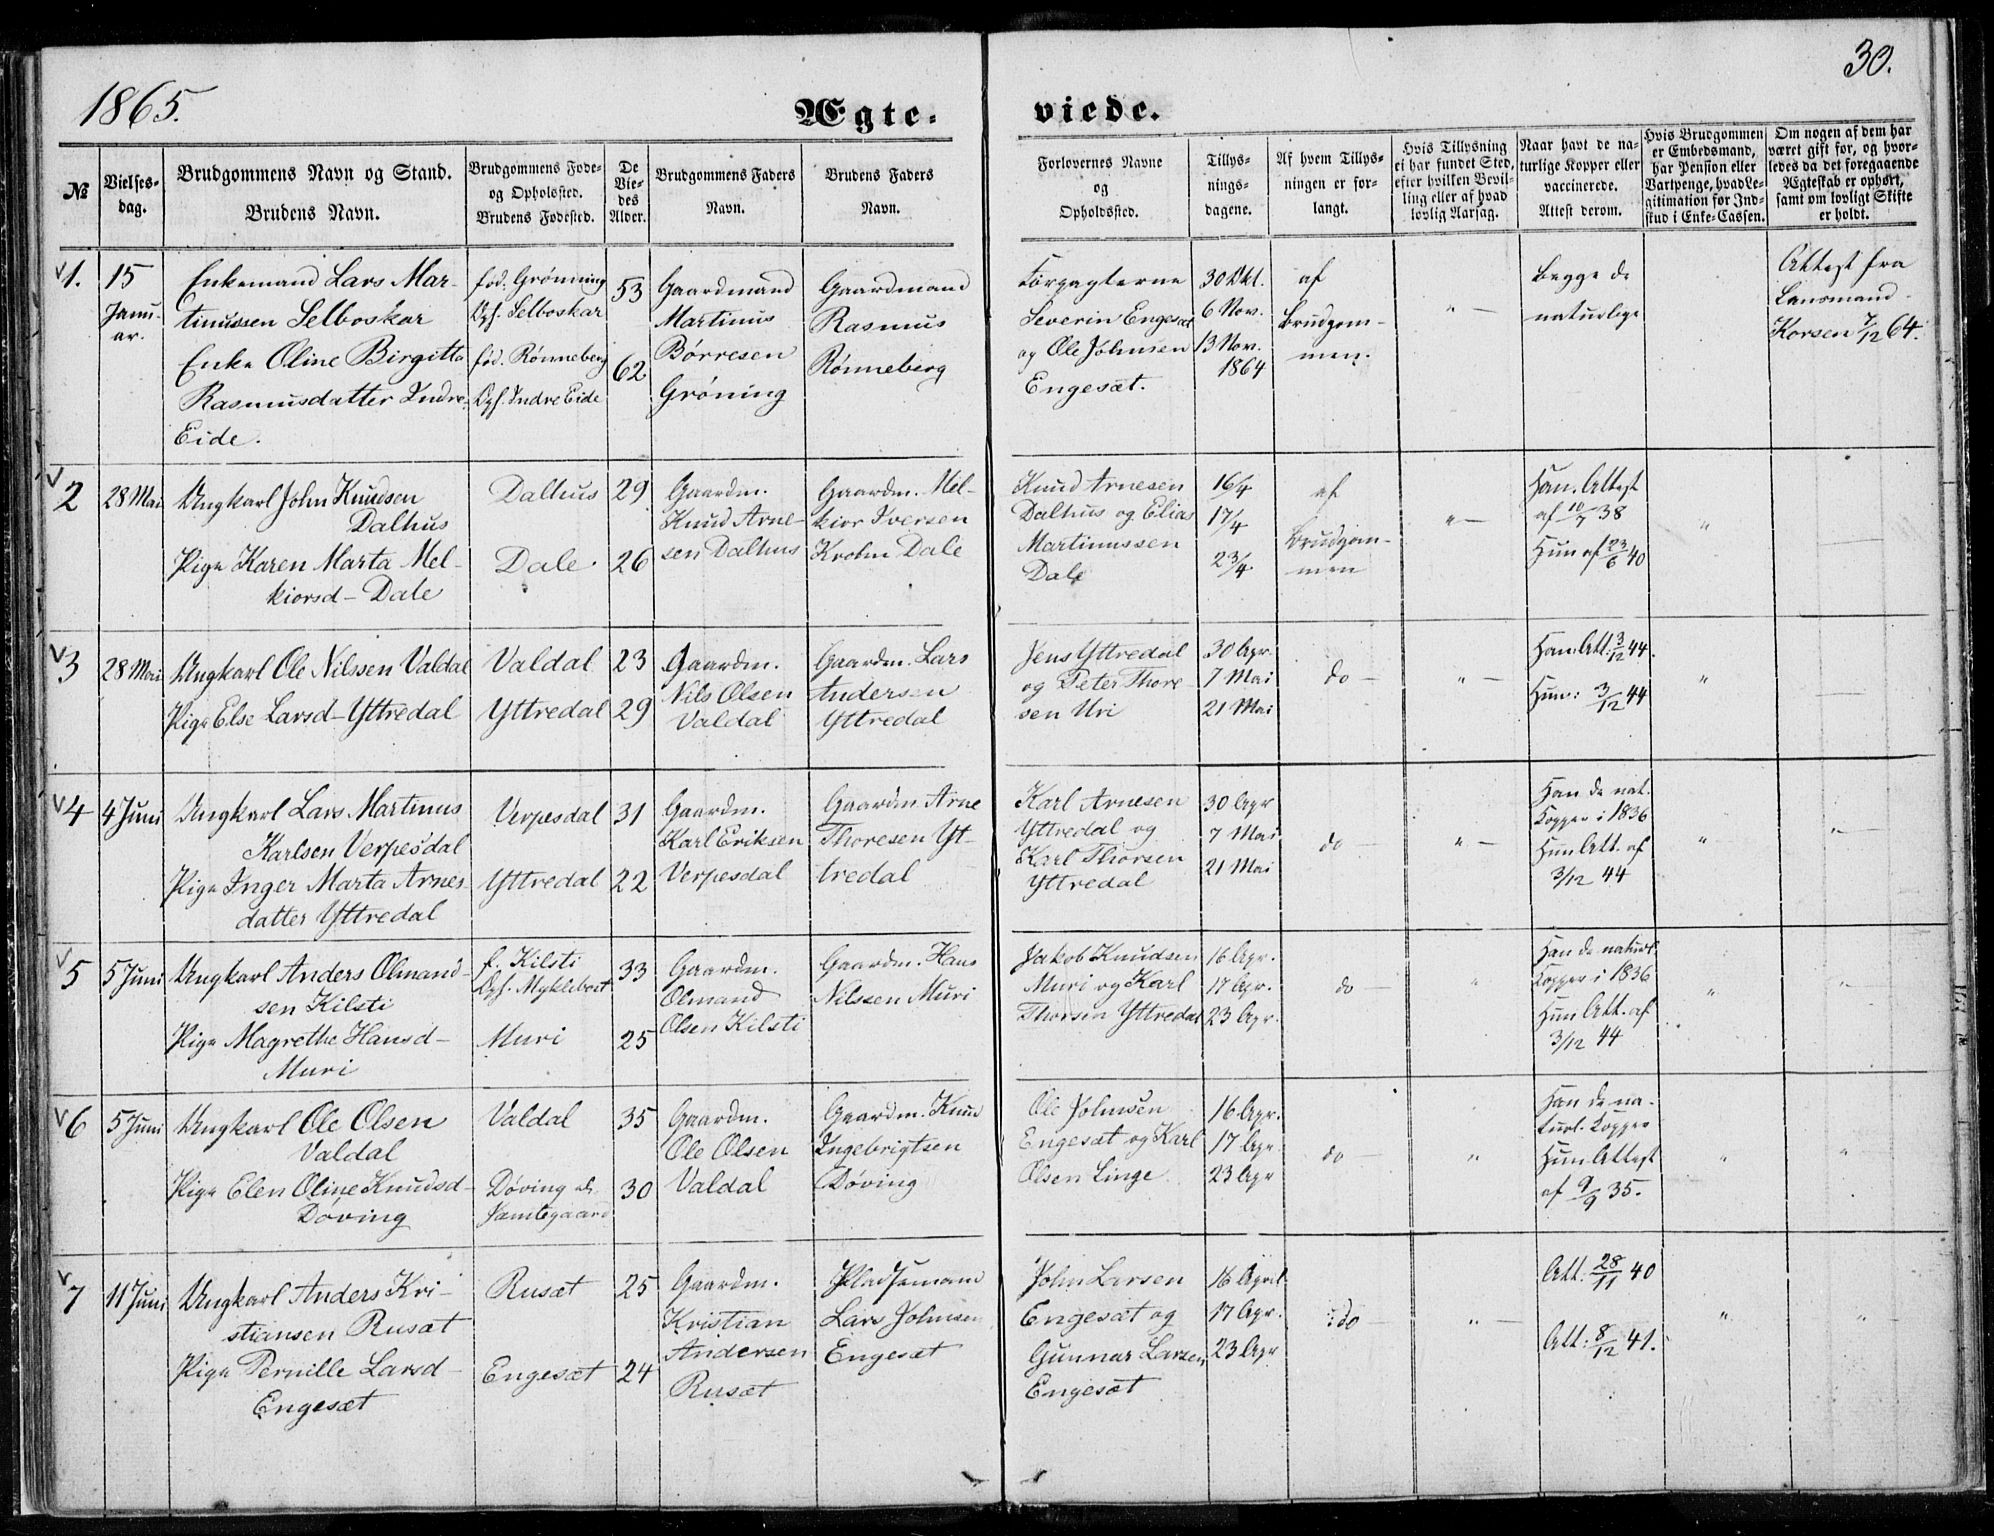 1865.
30.
Ægte-
viede.
№
Vielses-
dag.
Brudgommens Navn og Stand.
Brudens Navn.
Brudgommens Føde-
og Opholdsted.
Brudens Fødested.
De
Vie-
des
Alder.
Brudgommens Faders
Navn.
Brudens Faders
Navn.
Forlovernes Navne
og
Opholdssted.
Tillys-
nings-
dagene.
Af hvem Tillys-
ningen er for-
langt.
Hvis Tillysning
ei har fundet Sted,
efter hvilken Bevil-
ling eller af hvad
lovlig Aarsag.
Naar havt de na-
turlige Kopper eller
vaccinerede.
Attest derom.
Hvis Brudgommen
er Embedsmand,
har Pension eller
Vartpenge, hvad Le-
gitimation for Ind-
skud i Enke-Cassen.
Om nogen af dem har
været gift før, og hvor-
ledes da det foregaaende
Ægteskab er ophørt,
samt om lovligt Skifte
er holdt.
1.
15
Janu-
ar.
Enkemand Lars Mar-
tinussen Selboskar
Enke Oline Birgitta
Rasmusdatter Indre-
Eide.
fød. Grønning
Oph. Selboskar
fød. Rønneberg
Oph. Indre Eide
53
62
Gaardmand
Martinus
Børresen
Grøning
Gaardmand
Rasmus
Rønneberg
Forpagterne
Severin Engesæt
og Ole Johnsen
Engesæt.
30 Okt.
6 Nov.
13 Nov.
1864
af
Brudgom-
men.
" -
Begge de
naturlige
Attest fra
Lensmand
Korsen 7/12 64.
2
28 Mai
Ungkarl John Knudsen
Dalhus
Pige Karen Marta Mel-
kiorsd- Dale
Dalhus
Dale
29
26
Gaardm.
Knud Arne-
sen Dalhus
Gaardm. Mel-
kior Iversen
Krohn Dale
Knud Arnesen
Dalhus og Elias
Martinussen
Dale
16/4
17/4
23/4
af
Brudgom-
men
" -
Han. Attest
af 10/7 38
Hun af 23/6 40
"
3
28 Mai
Ungkarl Ole Nilssen Valdal
Pige Else Larsd- Yttredal
Valdal
Yttredal
23
29
Gaardm.
Nils Olsen
Valdal
Gaardm. Lars
Andersen
Yttredal
Jens Yttredal
og Peter Thore-
sen Uri
30 Apr.
7 Mai
21 Mai
do -
" -
Han. Att. 3/12 44.
Hun: 3/12 44
"
4
4 Juni
Ungkarl Lars Martinus
Karlsen Verpesdal
Pige Inger Marta Arnes
datter Yttredal
Verpesdal
Yttredal
31
22
Gaardm.
Karl Eriksen
Verpesdal
Gaardm Arne
Thoresen Yt-
tredal
Karl Arnesen
Yttredal og
Karl Thorsen
Yttredal
30 Apr
7 Mai
21 Mai
do -
" -
Han de nat.
Kopper i 1836
Hun Att. af
3/12 44
"
" -
5
5 Juni
Ungkarl Anders Olmand-
sen Kilsti
Pige Magrethe Hansd-
Muri
f. Kilsti
Oph. Myklebost
Muri
33
25
Gaardm.
Olmand
Olsen Kilsti
Gaardm. Hans
Nilssen Muri
Jakob Knudsen
Muri og Karl
Thorsen Yttredal
16 Apr.
17 Apr.
23 Apr.
do -
"
Han de naturl.
Kopper i 1836
Hun Att. af
3/12 44
"
" -
6
5 Juni
Ungkarl Ole Olsen
Valdal
Pige Elen Oline Knudsd-
Døving
Valdal
Døving
35
30
Gaardm.
Ole Olsen
Valdal
Gaardm. Knud
Ingebrigtsen
Døving
Ole Johnsen
Engesæt og Karl
Olsen Linge
16 Apr.
17 Apr
23 Apr
do -
"
Han de na-
turl. Kopper
Hun Attest
af 9/9 35.
"
"
7
11 Juni
Ungkarl Anders Kri-
stiansen Rusæt
Pige Pernille Larsd-
Engesæt
Rusæt
Engesæt
25
24
Gaardm.
Kristian
Andersen
Rusæt
Pladsemand
Lars Johnsen
Engesæt
John Larsen
Engesæt og
Gunnar Larsen
Engesæt
16 April
17 Apr.
23 Apr
do
" -
Att. 28/11 40
Att. 8/12 41.
"
"